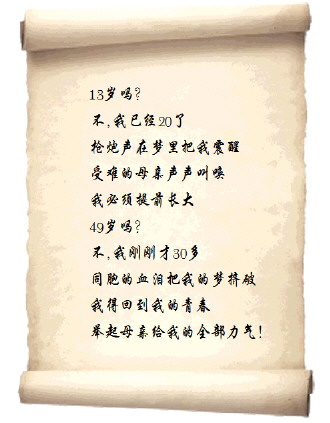 13岁吗？
不，我已经20了
枪炮声在梦里把我震醒
受难的母亲声声叫唤
我必须提前长大
49岁吗？
不，我刚刚才30多
同胞的血泪把我的梦挤破
我得回到我的青春
举起母亲给我的全部力气！